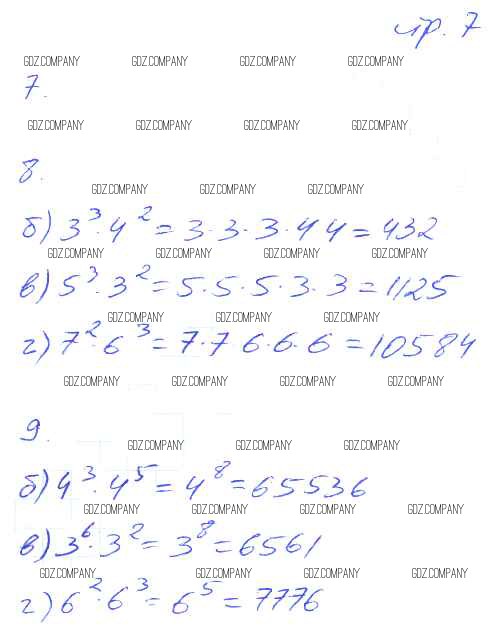 стр. 7
GDZ.COMPANY GDZ.COMPANY GDZ.COMPANY GDZ.COMPANY
7.
GDZ.COMPANY GDZ.COMPANY GDZ.COMPANY GDZ.COMPANY
8.
GDZ.COMPANY GDZ.COMPANY GDZ.COMPANY
б) 3³·4² = 3·3·3·4 4 = 432
GDZ.COMPANY GDZ.COMPANY GDZ.COMPANY GDZ.COMPANY
в) 5³·3² = 5·5·5·3·3 = 1125
GDZ.COMPANY GDZ.COMPANY GDZ.COMPANY
г) 7²·6³ = 7·7 6·6·6 = 10584
GDZ.COMPANY GDZ.COMPANY GDZ.COMPANY GDZ.COMPANY
9.
GDZ.COMPANY GDZ.COMPANY GDZ.COMPANY
б) 4³·4⁵ = 4⁸ = 65536
GDZ.COMPANY GDZ.COMPANY GDZ.COMPANY GDZ.COMPANY
в) 3⁶·3² = 3⁸ = 6561
GDZ.COMPANY GDZ.COMPANY GDZ.COMPANY GDZ.COMPANY
г) 6²·6³ = 6⁵ = 7776